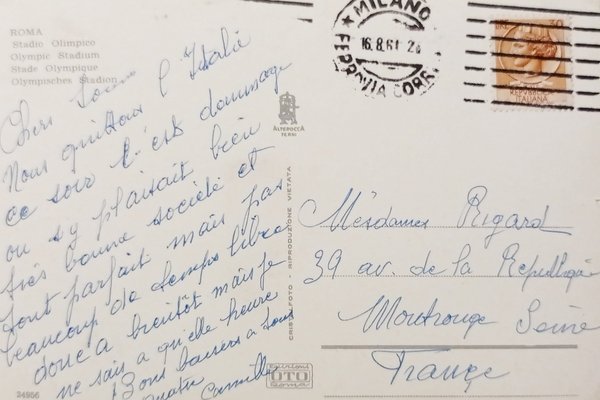 ROMA
Stadio Olimpico
Olympic Stadium
Stade Olympique
Olympisches Stadion
Chers tous
Nous quittons l'Italie
ce soir c'est dommage
on s'y plaisait bien
très bonne société et
tout parfait mais pas
beaucoup de temps libre
donc a bientôt mais je
ne sais a qu'elle heure
Bons baisers a tous
quatre
Camille
24956
ALTEROCCA
TERNI
CRISTALFOTO - RIPRODUZIONE VIETATA
OTO
ROMA
MILANO
16.8.61
FERROVIA CORR
ITALIANA
Mesdames Rigard
39 av. de la Republique
Montrouge Seine
France